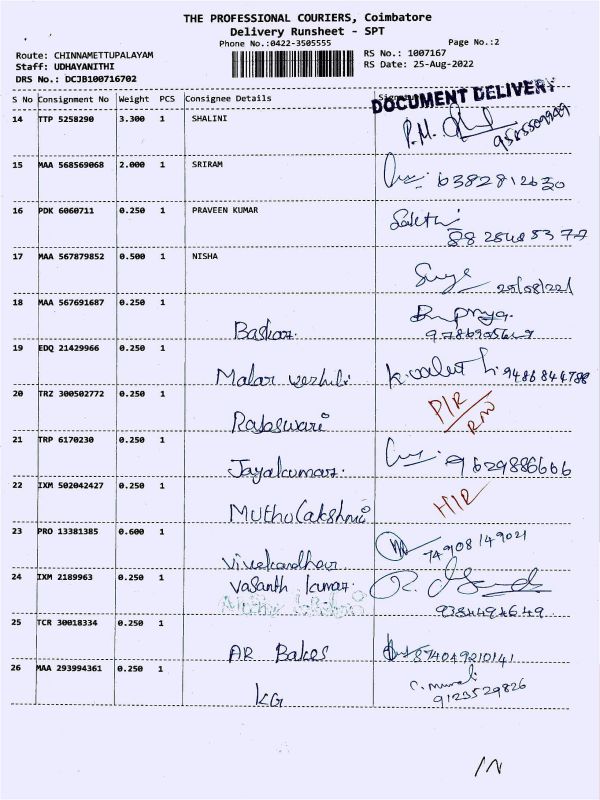 THE PROFESSIONAL COURIERS, Coimbatore
Delivery Runsheet - SPT
Phone No.:0422-3505555 Page No.:2
Route: CHINNAMETTUPALAYAM RS No.: 1007167
Staff: UDHAYANITHI RS Date: 25-Aug-2022
DRS No.: DCJB100716702
S No Consignment No Weight PCS Consignee Details
DOCUMENT DELIVERY
14 TTP 5258290 3.300 1 SHALINI P.M.
9585509949
15 MAA 568569068 2.000 1 SRIRAM 6382812630
16 PDK 6060711 0.250 1 PRAVEEN KUMAR Sakthi
17 MAA 567879852 0.500 1 NISHA
25/08/22
18 MAA 567691687 0.250 1 Baskar.
19 EDQ 21429966 0.250 1 Malar 9486844788
20 TRZ 300502772 0.250 1 Rajaswari
21 TRP 6170230 0.250 1 Jayakumar. 9629886606
22 IXM 502042427 0.250 1 Muthulakshmi
23 PRO 13381385 0.600 1 74908149021
24 IXM 2189963 0.250 1 Vasanth Kumar.
9384494649
25 TCR 30018334 0.250 1 AR Bakes
26 MAA 293994361 0.250 1 KG
9123529826